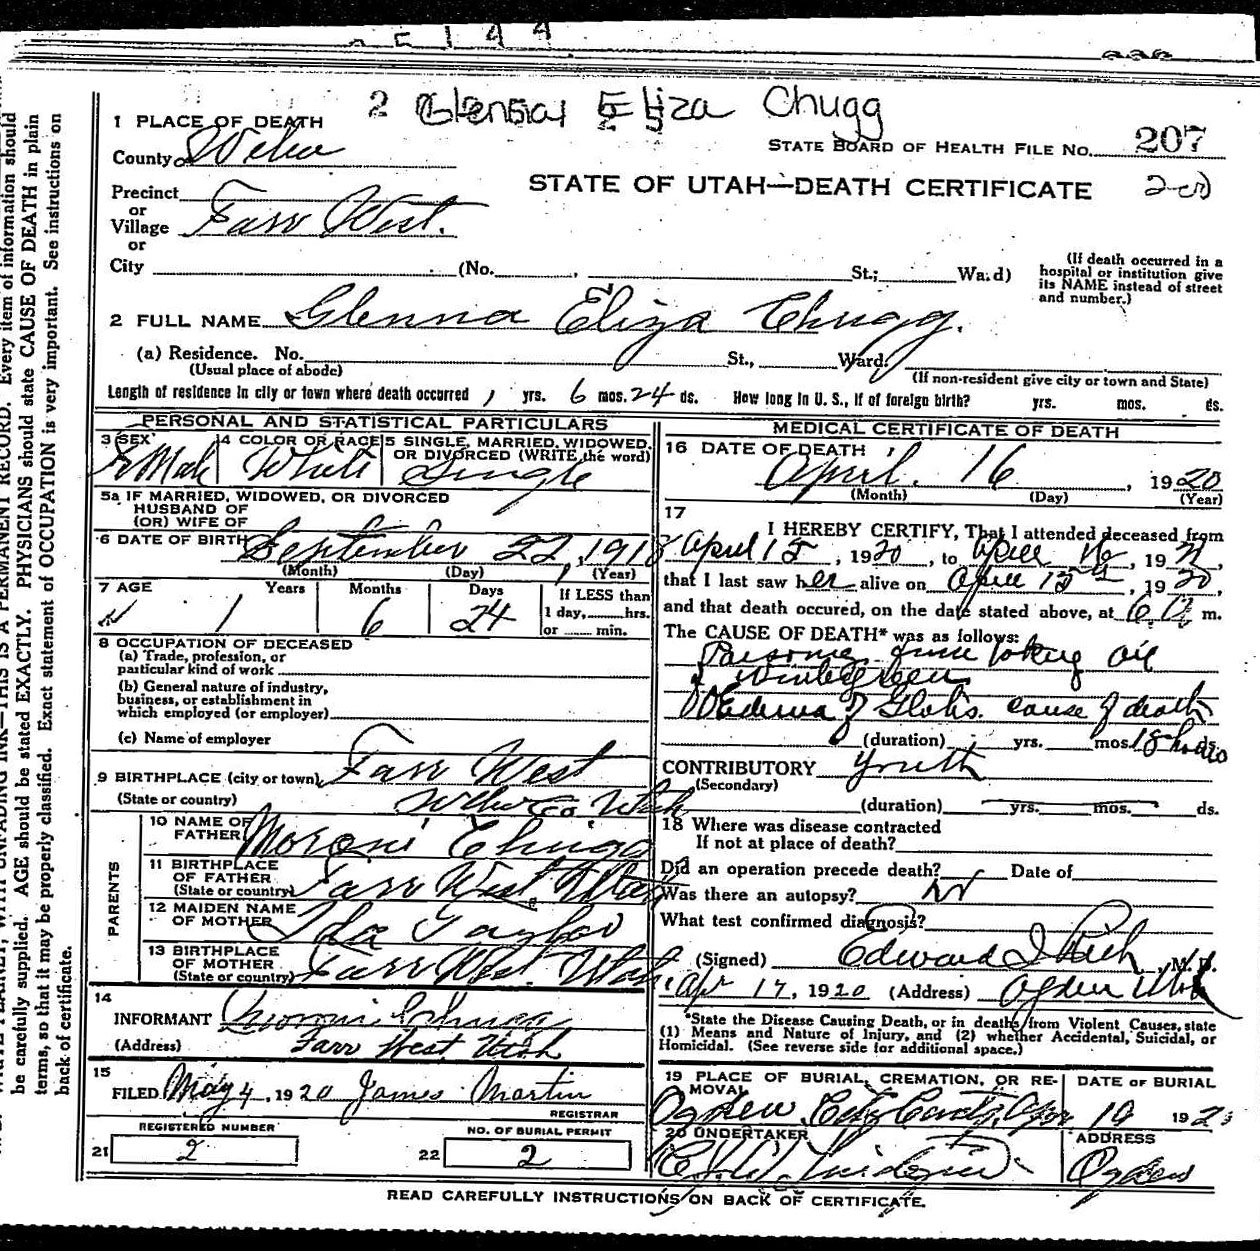 2 Glenna Eliza Chugg
1 PLACE OF DEATH
STATE BOARD OF HEALTH FILE No. 207
County Weber
STATE OF UTAH—DEATH CERTIFICATE
Precinct
or
Village Farr West.
or
City (No. , St.; Ward)
(If death occurred in a
hospital or institution give
its NAME instead of street
and number.)
2 FULL NAME Glenna Eliza Chugg.
(a) Residence. No. St., Ward.
(Usual place of abode)
(If non-resident give city or town and State)
Length of residence in city or town where death occurred 1 yrs. 6 mos. 24 ds. How long in U. S., if of foreign birth? yrs. mos. ds.
PERSONAL AND STATISTICAL PARTICULARS
3 SEX
4 COLOR OR RACE
5 SINGLE, MARRIED, WIDOWED,
OR DIVORCED (WRITE the word)
White Single
5a IF MARRIED, WIDOWED, OR DIVORCED
HUSBAND OF
(OR) WIFE OF
6 DATE OF BIRTH September 22, 1918
(Month) (Day) (Year)
7 AGE Years Months Days
1 6 24
If LESS than
1 day, hrs.
or min.
8 OCCUPATION OF DECEASED
(a) Trade, profession, or
particular kind of work
(b) General nature of industry,
business, or establishment in
which employed (or employer)
(c) Name of employer
9 BIRTHPLACE (city or town) Farr West
(State or country) Weber Co. Utah
PARENTS
10 NAME OF
FATHER Moroni Chugg
11 BIRTHPLACE
OF FATHER
(State or country) Farr West Utah
12 MAIDEN NAME
OF MOTHER Ida Taylor
13 BIRTHPLACE
OF MOTHER
(State or country) Farr West Utah
14
INFORMANT Moroni Chugg
(Address) Farr West Utah
15
FILED May 4, 1920 James Martin
REGISTRAR
REGISTERED NUMBER
21 2
NO. OF BURIAL PERMIT
22 2
MEDICAL CERTIFICATE OF DEATH
16 DATE OF DEATH
April 16, 1920
(Month) (Day) (Year)
17
I HEREBY CERTIFY, That I attended deceased from
April 15, 1920, to April 16, 19
that I last saw her alive on April 15, 1920,
and that death occured, on the date stated above, at 6 a m.
The CAUSE OF DEATH* was as follows:
Poisoning from taking oil
of wintergreen
Oedema of Glotis. cause of death
(duration) yrs. mos. 18 ds.
CONTRIBUTORY youth
(Secondary)
(duration) yrs. mos. ds.
18 Where was disease contracted
If not at place of death?
Did an operation precede death? Date of
Was there an autopsy? no
What test confirmed diagnosis?
(Signed) Edward I Rich, M. D.
Apr 17, 1920 (Address) Ogden Utah
*State the Disease Causing Death, or in deaths from Violent Causes, state
(1) Means and Nature of Injury, and (2) whether Accidental, Suicidal, or
Homicidal. (See reverse side for additional space.)
19 PLACE OF BURIAL, CREMATION, OR RE-
MOVAL
DATE OF BURIAL
Ogden City
20 UNDERTAKER
ADDRESS
Ogden
READ CAREFULLY INSTRUCTIONS ON BACK OF CERTIFICATE.
THIS IS A PERMANENT RECORD. Every item of information should
be carefully supplied. AGE should be stated EXACTLY. PHYSICIANS should state CAUSE OF DEATH in plain
terms, so that it may be properly classified. Exact statement of OCCUPATION is very important. See instructions on
back of certificate.